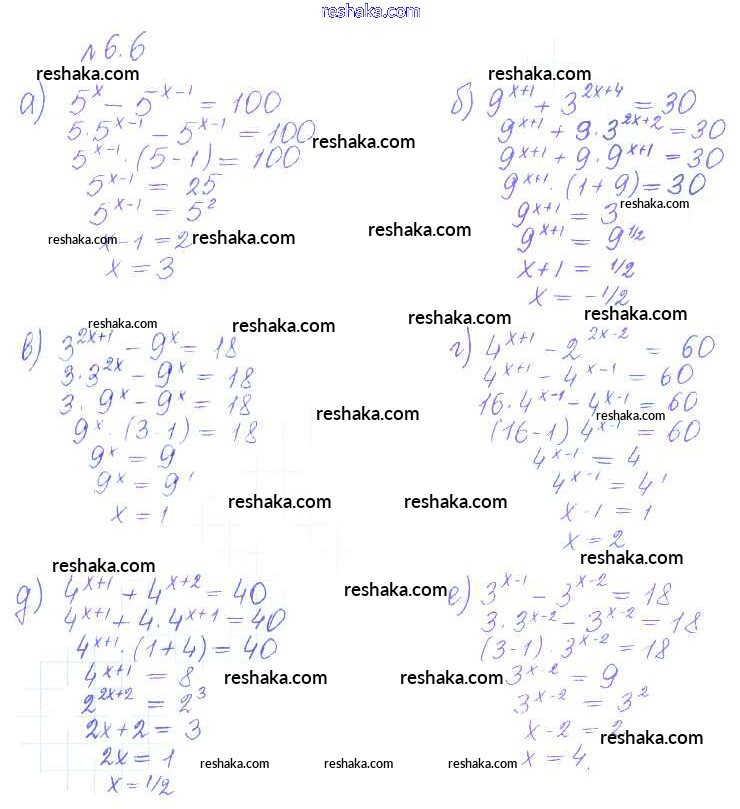 reshaka.com
№ 6.6
reshaka.com
а) 5^x − 5^{x−1} = 100
5·5^{x−1} − 5^{x−1} = 100
reshaka.com
5^{x−1}·(5−1) = 100
5^{x−1} = 25
5^{x−1} = 5^2
reshaka.com x−1 = 2 reshaka.com
x = 3
reshaka.com
б) 9^{x+1} + 3^{2x+4} = 30
9^{x+1} + 9·3^{2x+2} = 30
9^{x+1} + 9·9^{x+1} = 30
9^{x+1}·(1+9) = 30
9^{x+1} = 3 reshaka.com
reshaka.com 9^{x+1} = 9^{1/2}
x+1 = 1/2
x = −1/2
reshaka.com reshaka.com
в) 3^{2x+1} − 9^x = 18
3·3^{2x} − 9^x = 18
3·9^x − 9^x = 18
9^x·(3−1) = 18
reshaka.com
9^x = 9
9^x = 9^1
x = 1
reshaka.com
reshaka.com
г) 4^{x+1} − 2^{2x−2} = 60
4^{x+1} − 4^{x−1} = 60
16·4^{x−1} − 4^{x−1} = 60
reshaka.com
(16−1) 4^{x−1} = 60
4^{x−1} = 4
4^{x−1} = 4^1
reshaka.com
x−1 = 1
x = 2
reshaka.com
reshaka.com
д) 4^{x+1} + 4^{x+2} = 40
4^{x+1} + 4·4^{x+1} = 40
4^{x+1}·(1+4) = 40
4^{x+1} = 8 reshaka.com
2^{2x+2} = 2^3
2x+2 = 3
2x = 1
x = 1/2
reshaka.com
е) 3^{x−1} − 3^{x−2} = 18
3·3^{x−2} − 3^{x−2} = 18
(3−1)·3^{x−2} = 18
reshaka.com 3^{x−2} = 9
3^{x−2} = 3^2
x−2 = 2
reshaka.com
x = 4.
reshaka.com reshaka.com reshaka.com